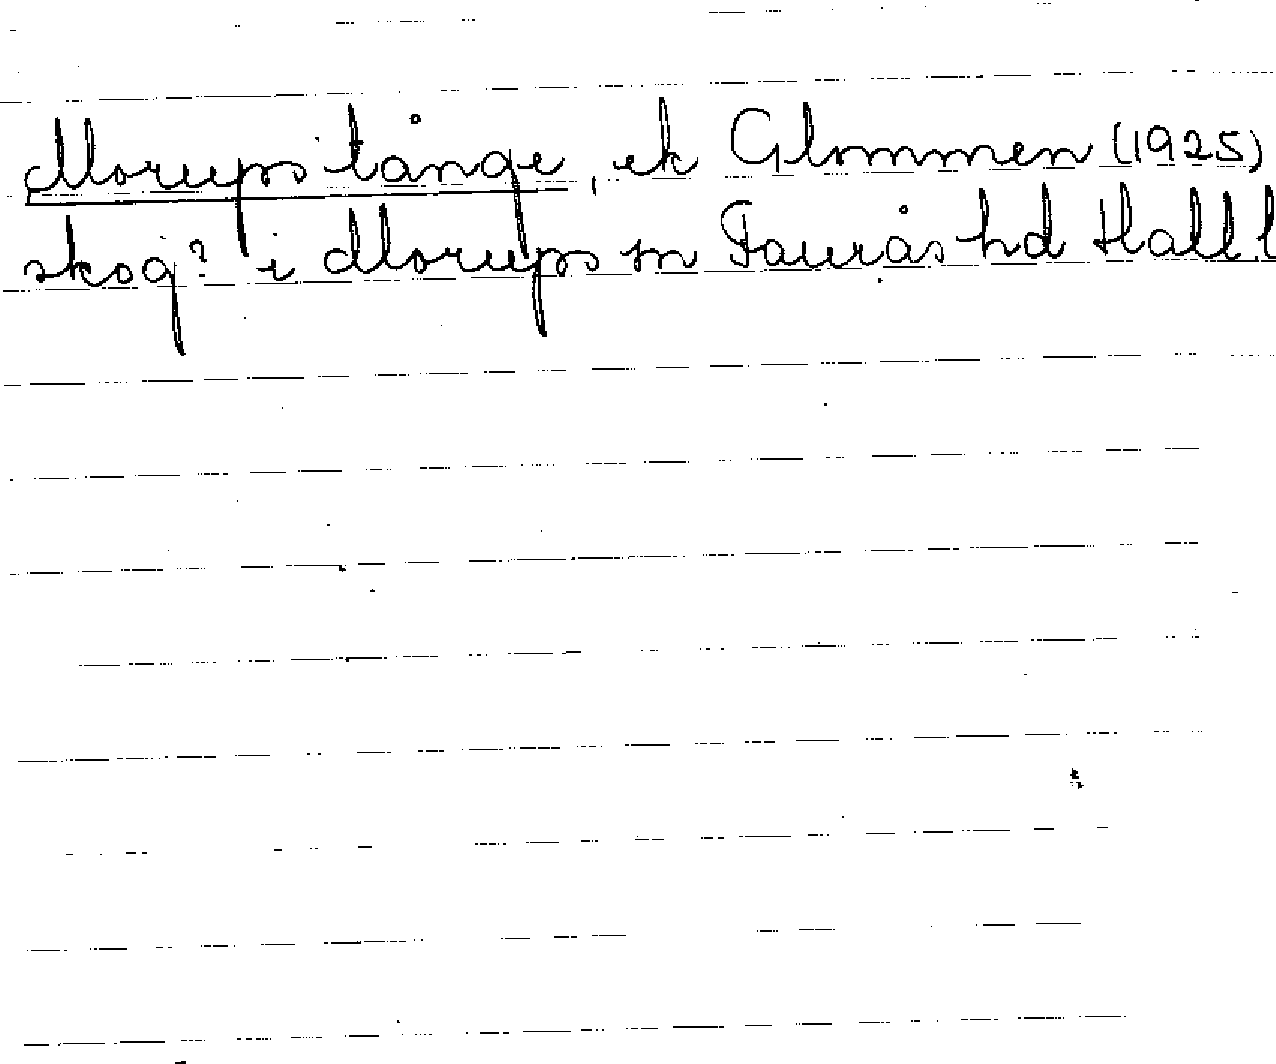 Morups tånge, ek Glommen (1925)
skog? i Morups sn Faurås hd Hall.l